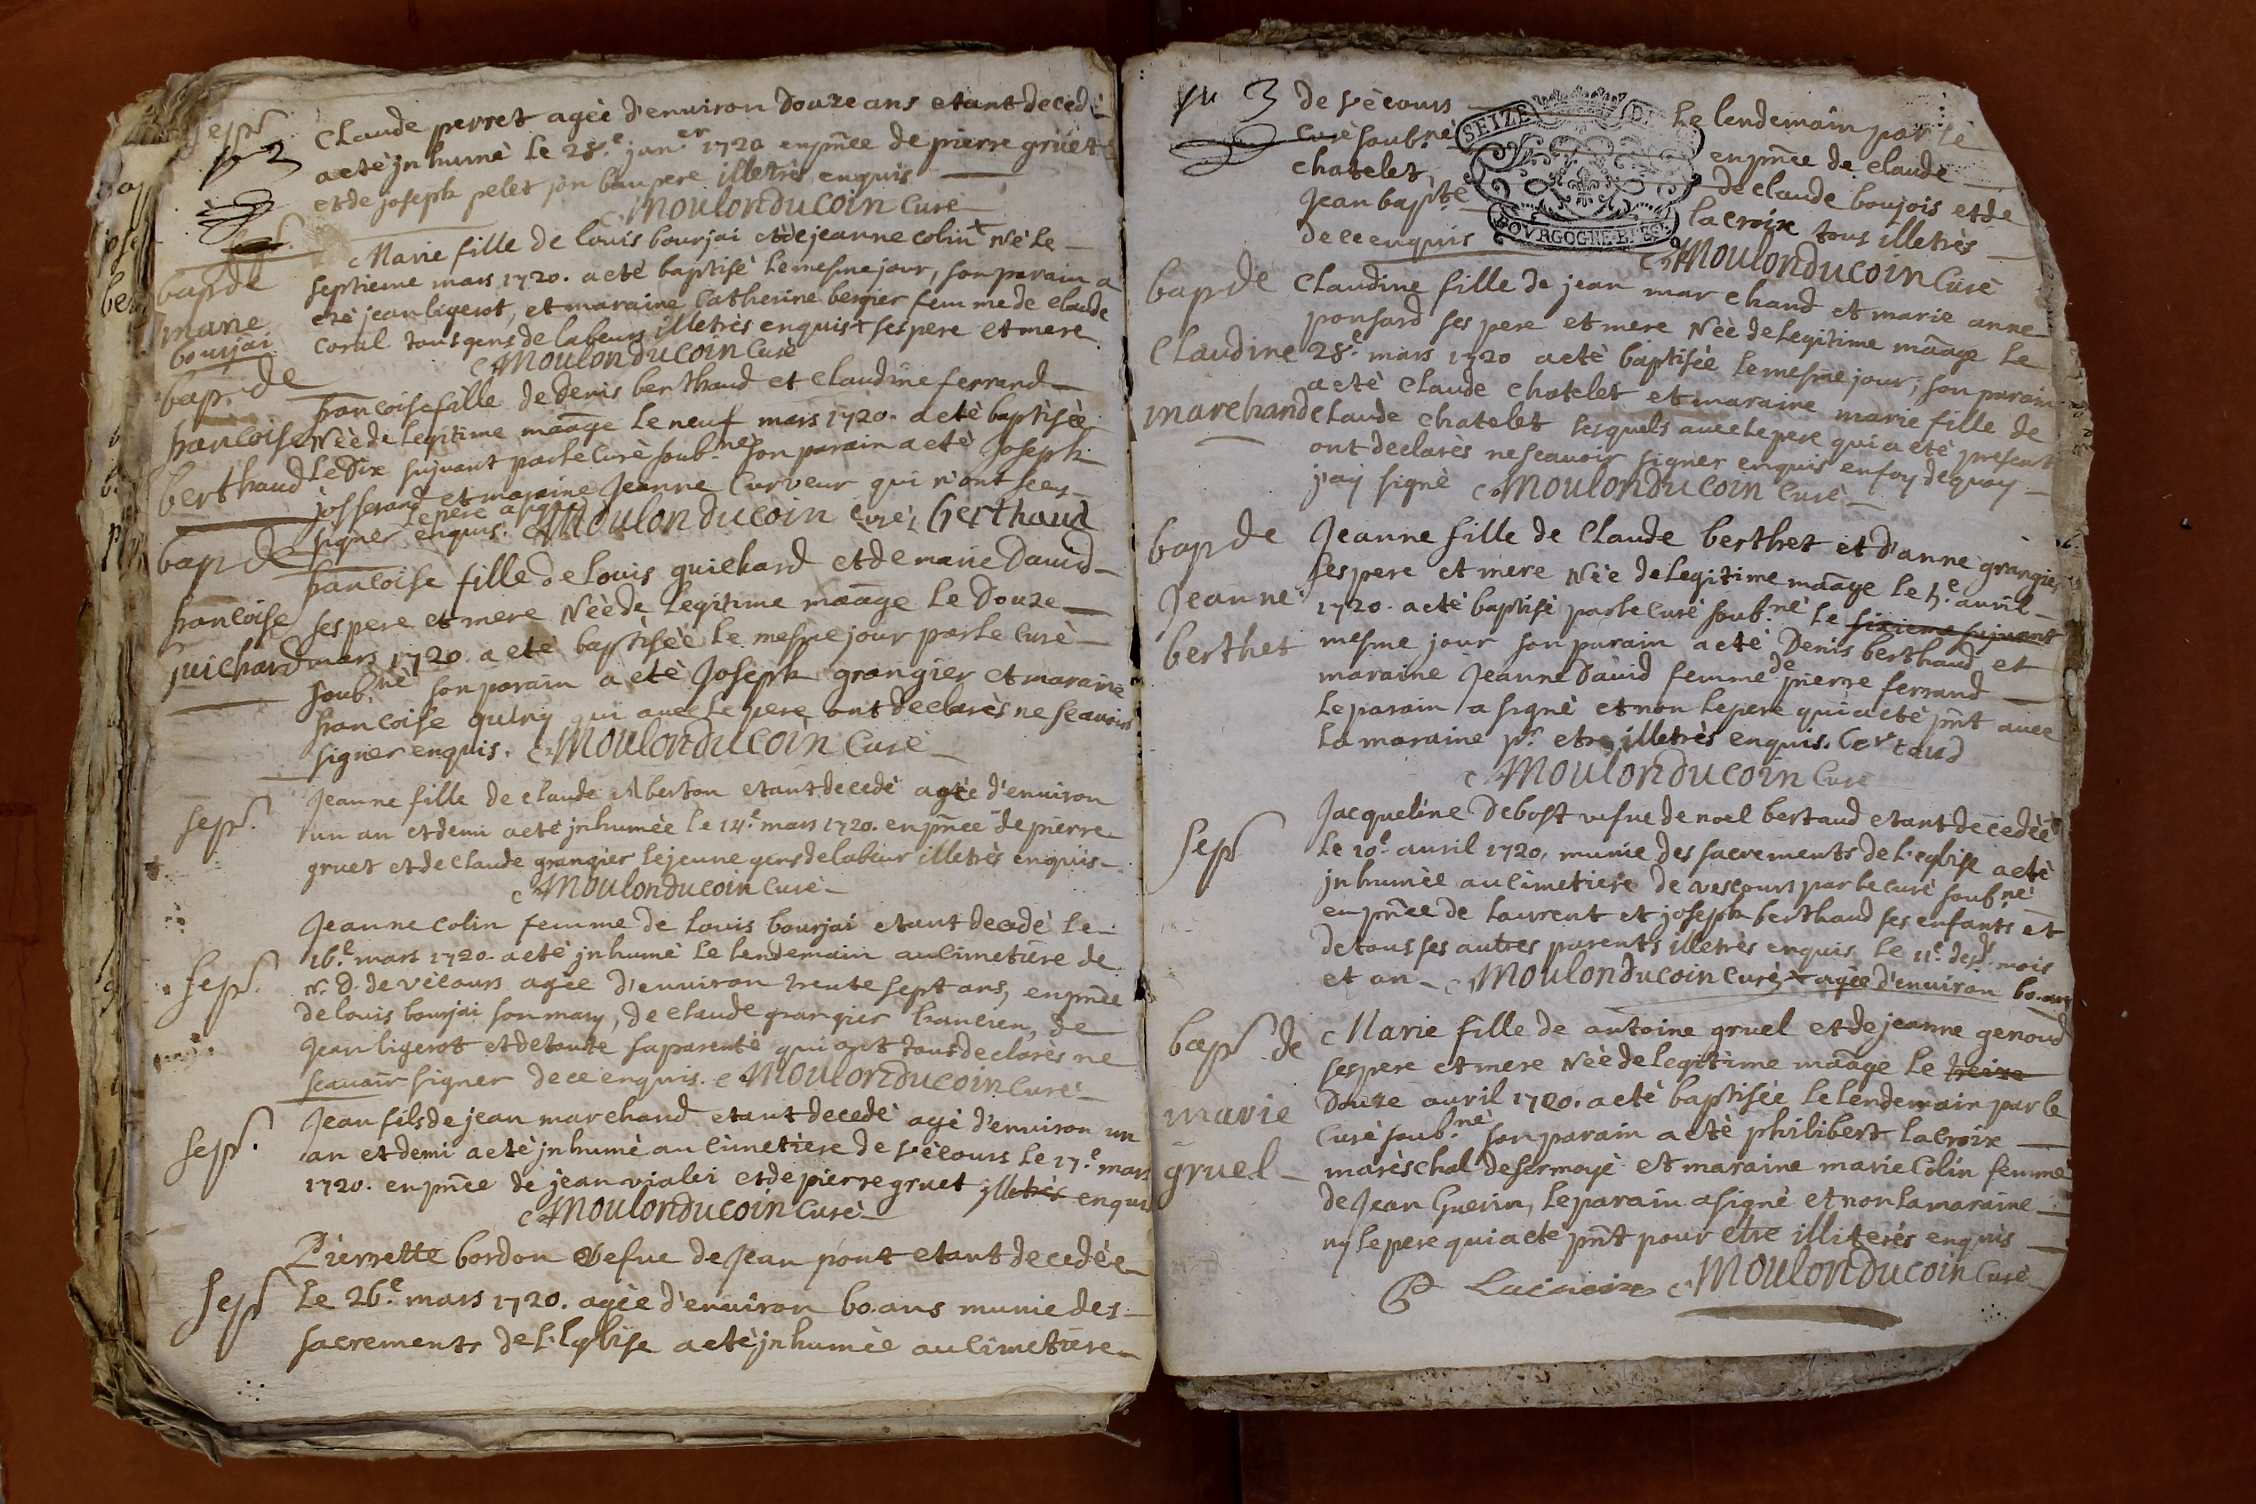 sep.
p 2
Claude perret agée d'environ Douze ans etant decedé
a eté jnhumé le 28.e janer 1720 enpñce de pierre gruet
et de joseph pelet son beaupere illetrès enquis
Moulonducoin Curé
bap de
marie
bourjai
Marie fille de louis bourjai et de jeanne colin + Né le
septieme mars 1720. a eté baptisé le mesme jour, son parain a
eté jean ligerot, et maraine Catherine bergier femme de claude
coral tous gens de labeurs illetrès enquis + ses pere et mere
Moulonducoin Curé
bap. de
francoise
berthaud
francoise fille de Denis berthaud et Claudine ferrand
Néé de legitime maage le neuf mars 1720. a eté baptisèe
Le Dix sujvant par le Curé soub.né son parain a eté Joseph
josserand et maraine Jeanne Curveur qui n'ont sceu
le pere a signé
signer enquis. Moulonducoin curé, berthaud
bap de
francoise
guichard
francoise fille de Louis guichard et de marie David
ses pere et mere Néé de legitime maage le Douze
mars 1720 a eté baptisèe le mesme jour par le Curé
soub.né son parain a eté Joseph grangier et maraine
francoise qui avec le pere ont declarès ne scavoir
signer enquis. Moulonducoin Curé
sep.
Jeanne fille de claude Alberton etant decedé agée d'environ
un an et demi a eté jnhumèe le 14.e mars 1720. enpñce de pierre
gruet et de Claude grangier lejeune gens de labeur illetrès enquis
Moulonducoin Curé
sep.
Jeanne colin femme de louis bourjai etant decedé le
16.e mars 1720. a eté jnhumé le lendemain au cimetiére de
N. D. de vécours agée d'environ trente sept ans, enpñce
de louis bourjai son mary, de claude grangier l'ancien, de
jean ligerot et de toute sa parenté qui ont tous declarès ne
scavoir signer de ce enquis. Moulonducoin Curé
sep.
Jean fils de jean marchand etant decedé agé d'environ un
an et demi a eté jnhumé au cimetiere de vécours le 17.e mars
1720. enpñce de jean vialei et de pierre gruet illetrès enquis
Moulonducoin Curé
sep
Pierrette bordon vefue de Jean pont etant decedée
le 26.e mars 1720. agèe d'environ 60. ans munie des
sacrements de l'Eglise a eté jnhumèe au cimetiere
p 3
de vécours le lendemain par le
curé soub.né enpñce de claude
chatelet, de claude boujois et de
Jean bapte lacroix tous illetrès
de ce enquis Moulonducoin Curé
SEIZE D
BOVRGOGNE BRESSE
bap de
Claudine
marchand
Claudine fille de jean marchand et marie anne
ponsard ses pere et mere Néé de legitime maage le
28.e mars 1720 a eté baptisèe le mesme jour, son parain
a eté Claude chatelet et maraine marie fille de
Claude chatelet lesquels avec le pere qui a eté present
ont declarès ne scavoir signer enquis en foy de quoy
j'ay signé Moulonducoin Curé
bap de
Jeanne
berthet
Jeanne fille de Claude berthet et d'anne grangier
ses pere et mere Néé de legitime maage le 5.e avril
1720. a eté baptisé par le Curé soub.né le sixieme sujvant
mesme jour son parain a eté Denis berthaud et
maraine Jeanne David femme de pierre ferrand
le parain a signé et non le pere qui a eté pñt avec
la maraine pr etre illetrès enquis. bertaud
Moulonducoin Curé
sep
Jacqueline Debost vefue de noel bertaud etant decedèe +
le 10.e avril 1720, munie des sacrements de l'eglise a eté
jnhumèe au cimetiere de vescours par le curé soub.né
enpñce de laurent et joseph berthaud ses enfants et
de tous ses autres parents illetrès enquis, le 11.e desd. mois
et an Moulonducoin Curé + agèe d'environ 60. ans
bap. de
marie
gruel
Marie fille de antoine gruel et de jeanne genoud
ses pere et mere Néé de legitime maage le treize
Douze avril 1720. a eté baptisèe le lendemain par le
Curé soub.né son parain a eté philibert lacroix
marèschal de sermoyé et maraine marie Colin femme
de Jean Guerin, le parain a signé et non la maraine
ny le pere qui a eté pñt pour etre illiterés enquis
P Lacroix Moulonducoin Curé